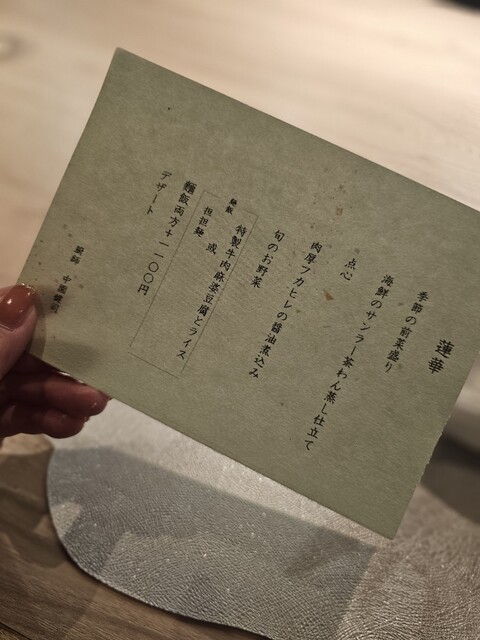 蓮華
季節の前菜盛り
海鮮のサンラー茶わん蒸し仕立て
点心
肉厚フカヒレの醤油煮込み
旬のお野菜
麺飯
特製牛肉麻婆豆腐とライス
或
担担麺
麺飯両方+一一〇〇円
デザート
厨師 中園